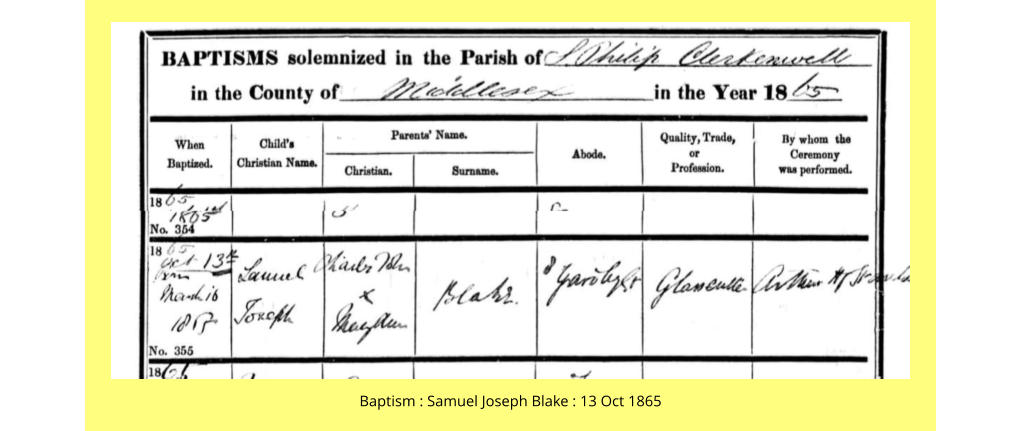 BAPTISMS solemnized in the Parish of S. Philip Clerkenwell
in the County of Middlesex in the Year 1865
When Baptized.
Child's Christian Name.
Parents' Name.
Christian.
Surname.
Abode.
Quality, Trade, or Profession.
By whom the Ceremony was performed.
1865
No. 354
1865
Oct 13th
born
March 16
No. 355
Samuel
Joseph
Charles John
x
Mary Ann
Blake
8
Glasscutter
Arthur
18
Baptism : Samuel Joseph Blake : 13 Oct 1865